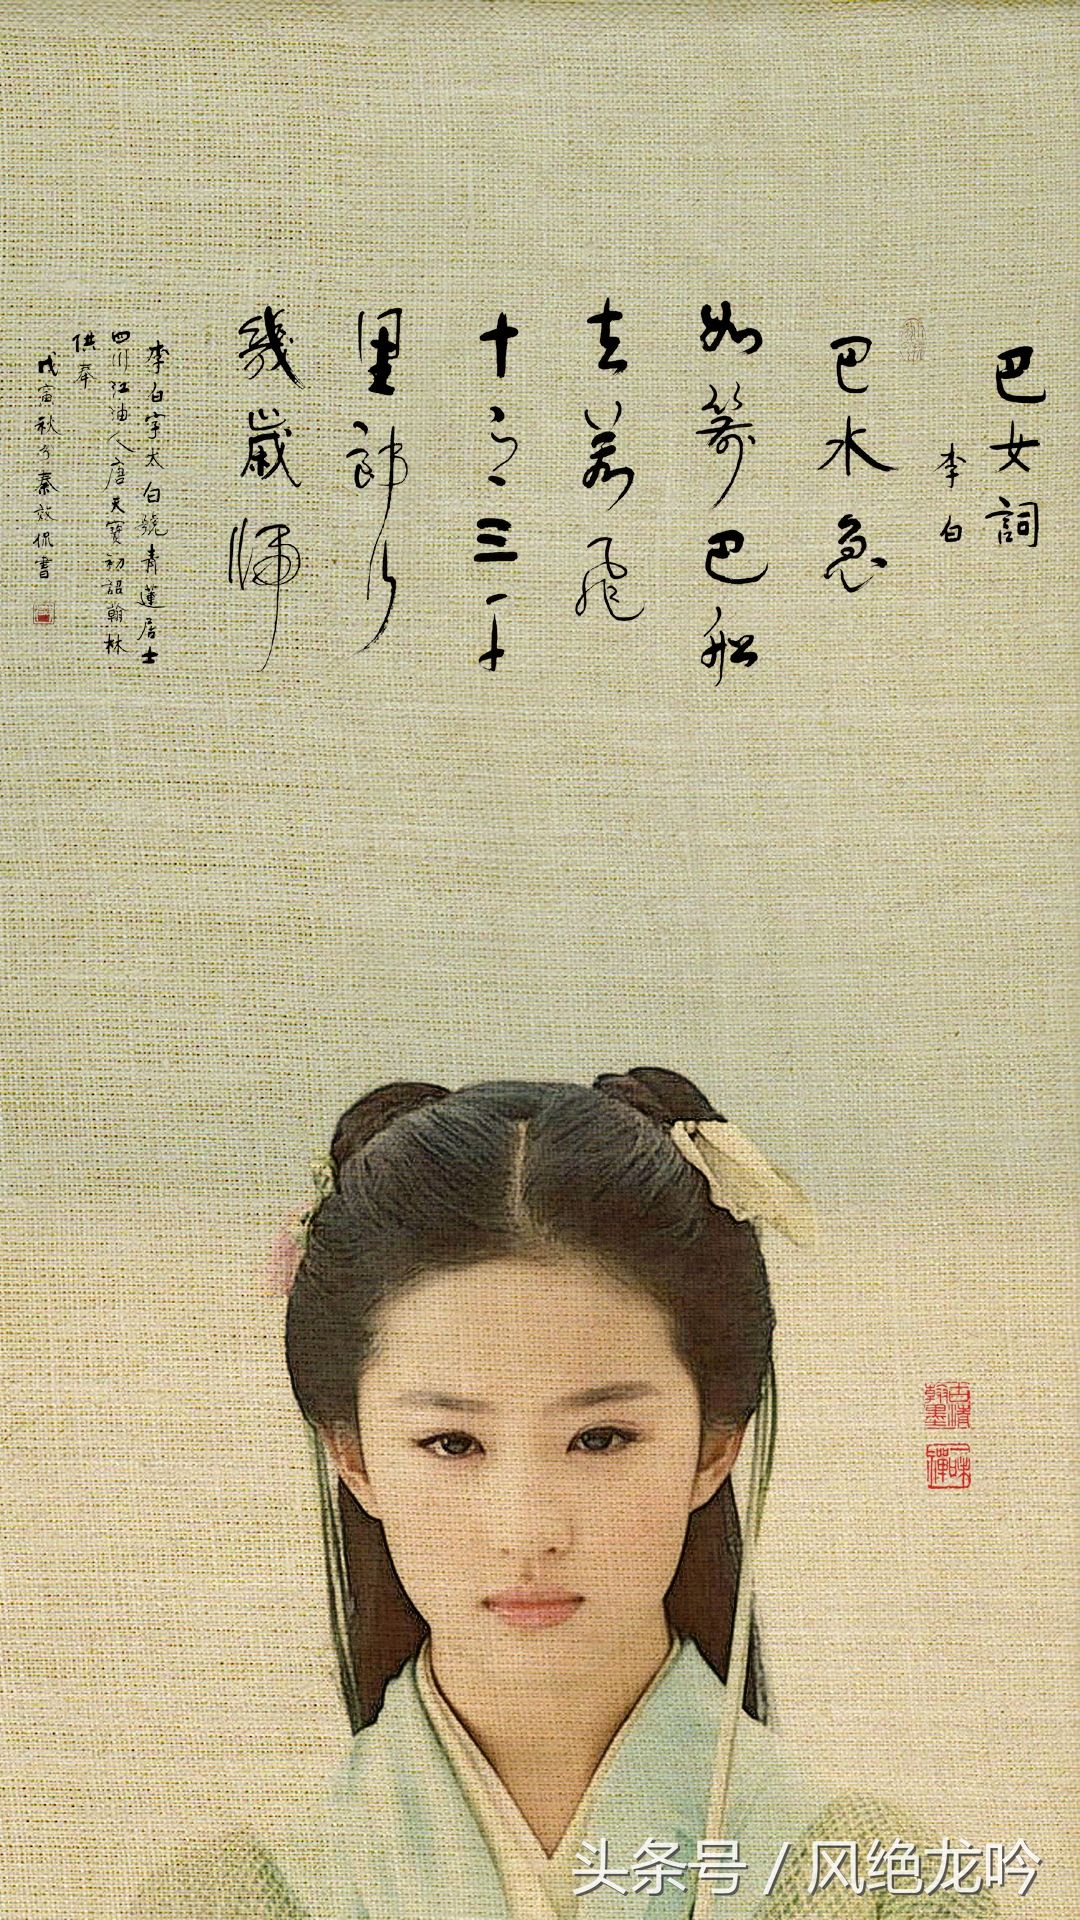 巴女詞
李白
巴水急
如箭巴船
去若飛
十月三千
里郎行
幾歲歸
李白字太白號青蓮居士
四川江油人唐天寶初詔翰林
供奉
戊寅秋月秦效侃書
古清
翰墨
一味
禪
头条号 / 风绝龙吟